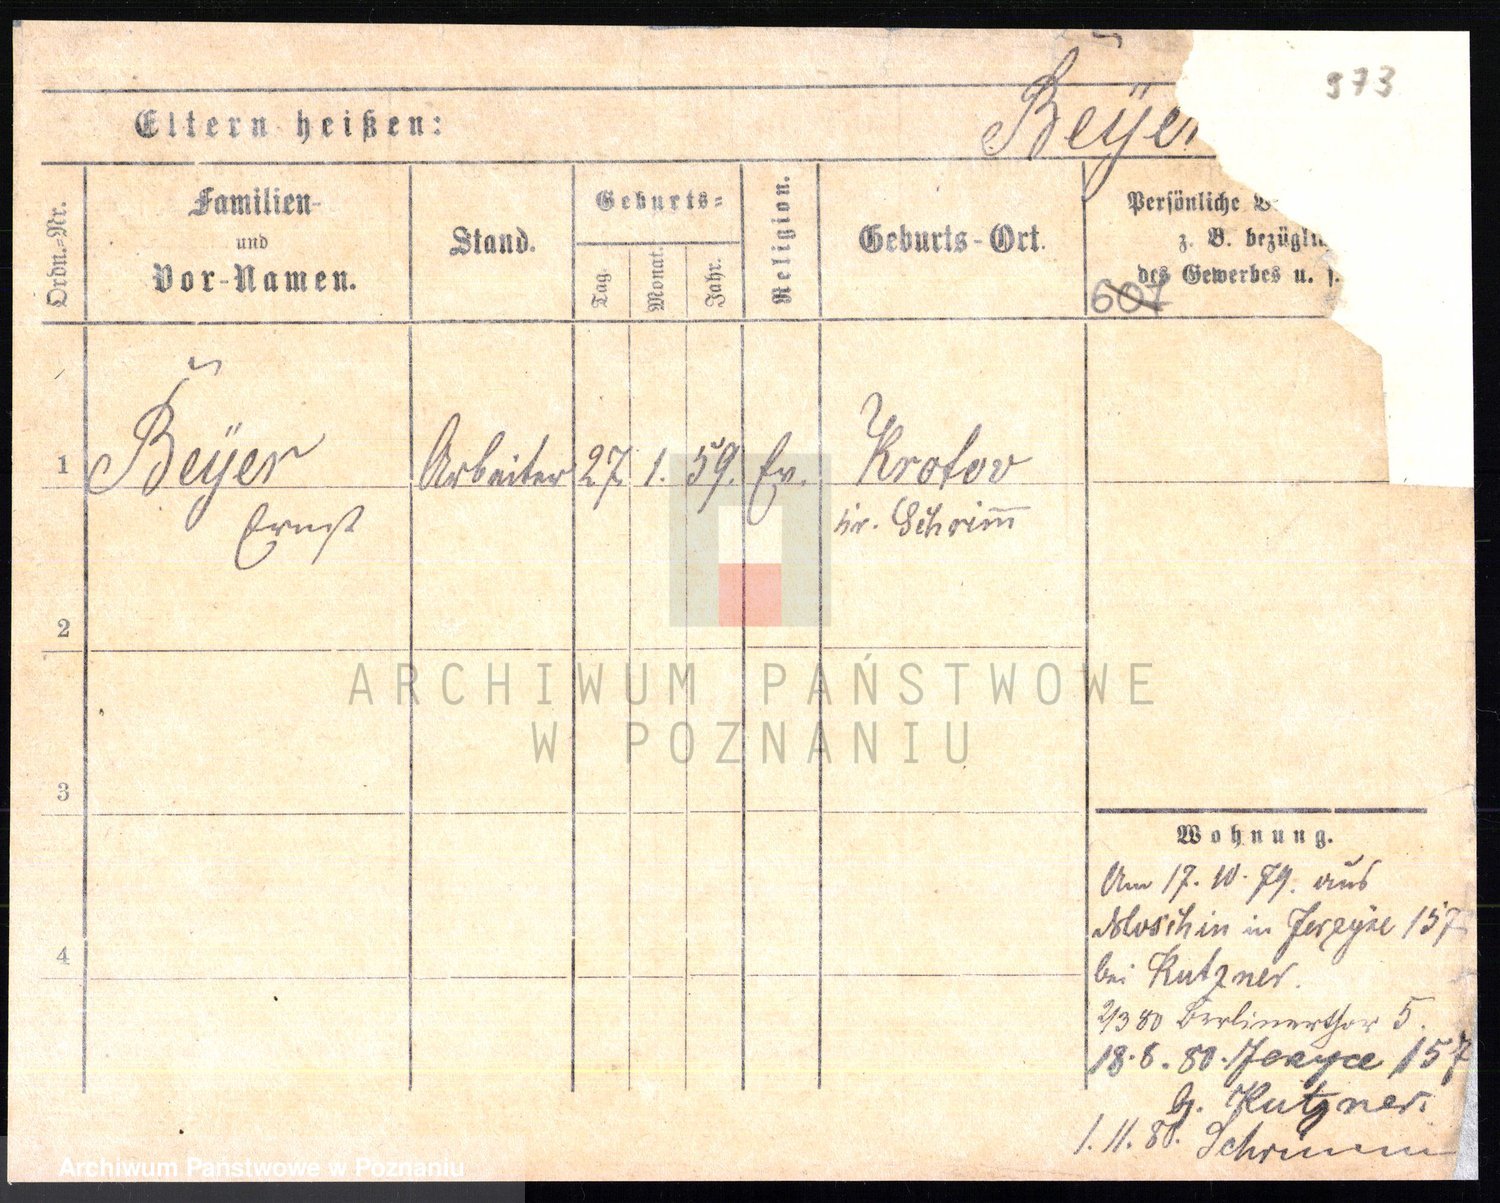 973
Beÿer
Eltern heißen:
Ordn.=Nr.
Familien-
und
Vor-Namen.
Stand.
Geburts=
Tag.
Monat.
Jahr.
Religion.
Geburts-Ort.
Persönliche
z. B.
des Gewerbes u. s.
607
1
Beÿer
Arbeiter
27. 1. 59.
Ev.
Krotov
Ernst
kr. Schrim̄
2
3
4
Wohnung.
Am 17. 10. 79. aus
Moschin in Jerzyce 157
bei Kutzner.
2/3 80 Berlinerthor 5.
18. 8. 80. Jerzyce 157
b. Kutzner.
1. 11. 80. Schrimm
ARCHIWUM PAŃSTWOWE
W POZNANIU
Archiwum Państwowe w Poznaniu